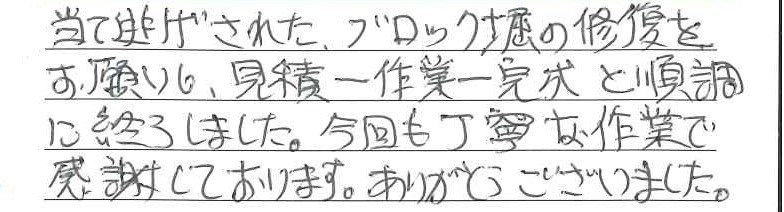 当て逃げされた、ブロック堀の修復を
お願いし、見積ー作業ー完成と順調
に終ろしました。今回も丁寧な作業で
感謝しております。ありがとうございました。